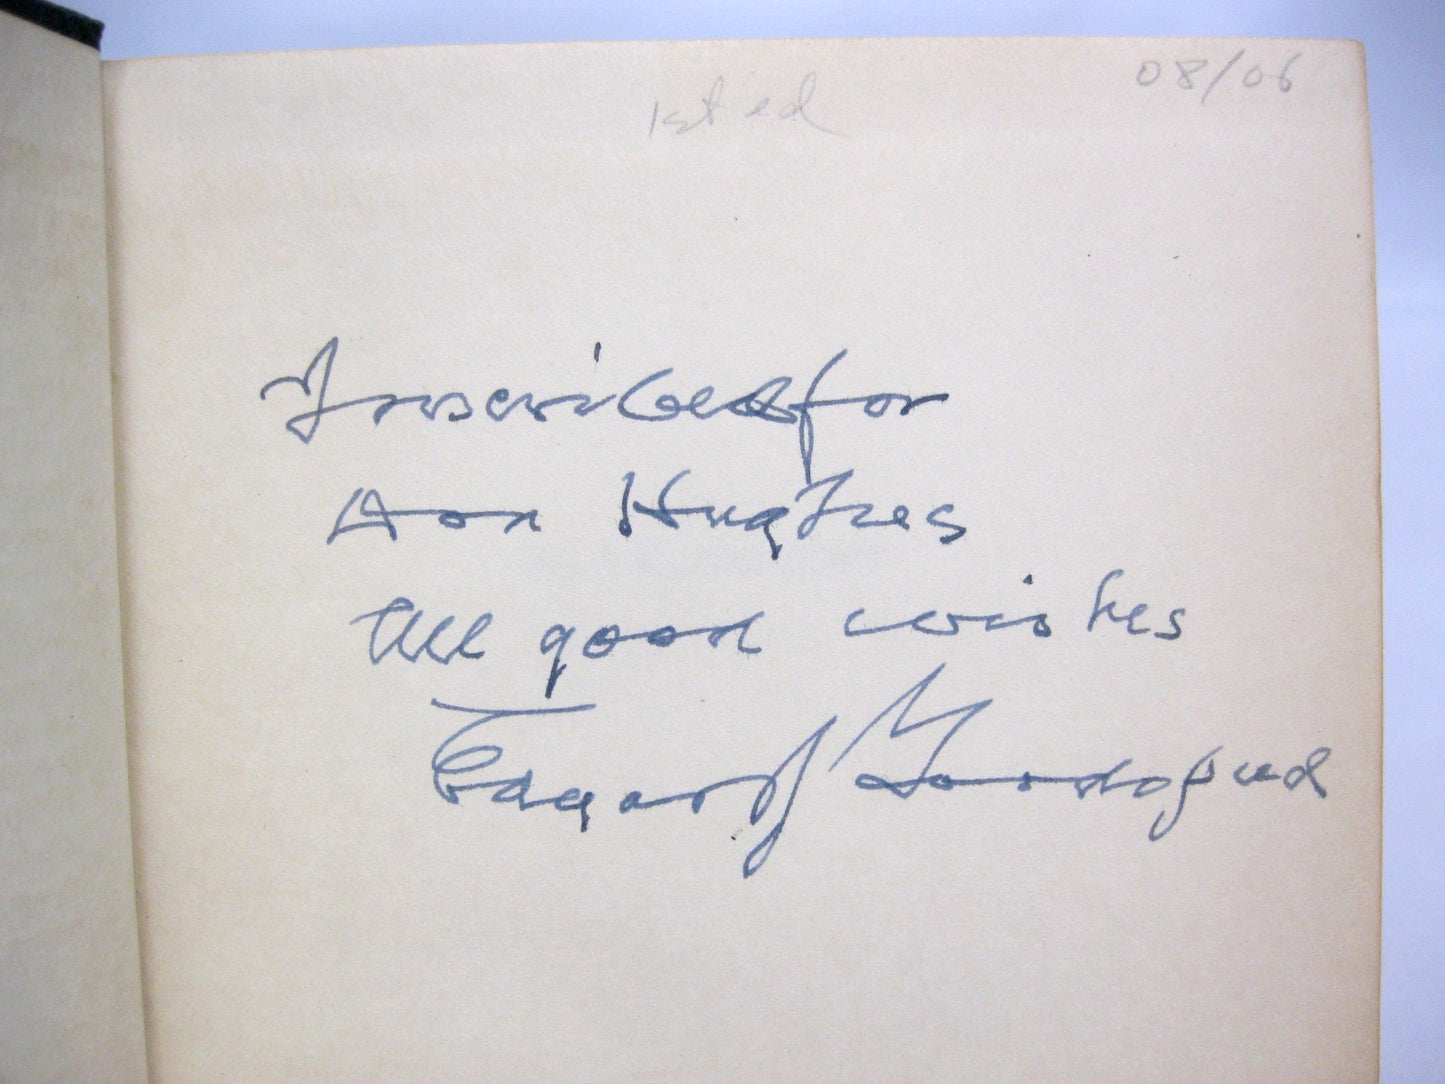 1st ed
08/06
Inscribed for
Ann Hughes
All good wishes
Edgar J Goodspeed